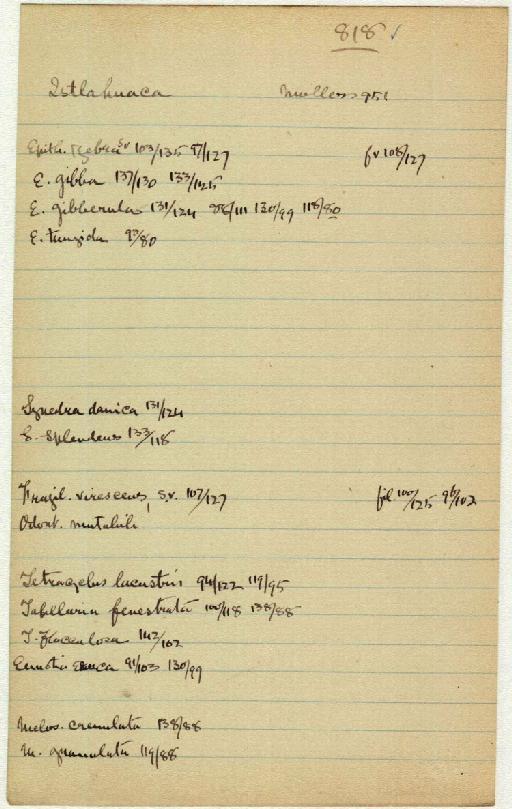 818 ✓
Istlahuaca Moller 951
Epith. zebra sv 103/135 97/127 fv 108/127
E. gibba 137/130 133/125
E. gibberula 131/124 98/111 130/99 118/80
E. turgida 93/80
Synedra danica 131/124
S. splendens 133/118
Fragil. virescens, s.v. 107/127 fil 100/125 96/102
Odont. mutabile
Tetracyclus lacustris 94/122 119/95
Tabellaria fenestrata 100/118 138/88
T. flocculosa 142/102
Eunotia 91/103 130/99
Melos. crenulata 138/88
M. granulata 119/88